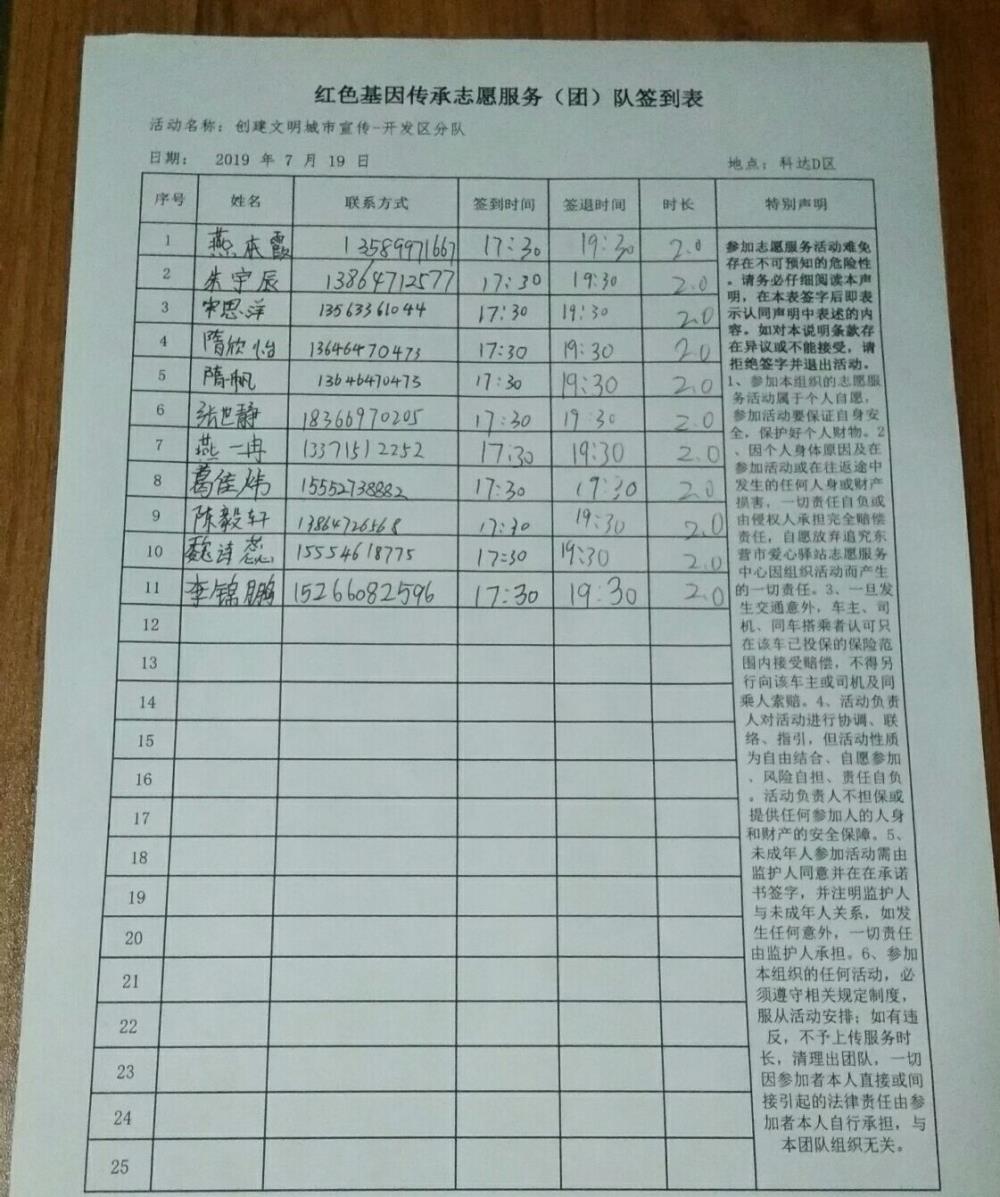 红色基因传承志愿服务（团）队签到表
活动名称：创建文明城市宣传-开发区分队
日期： 2019 年 7 月 19 日 地点：科达D区
序号 姓名 联系方式 签到时间 签退时间 时长 特别声明
1 燕本霞 13589971667 17:30 19:30 2.0
2 朱宇辰 13864712577 17:30 19:30 2.0
3 宋思洋 13563361044 17:30 19:30 2.0
4 隋欣怡 13646470473 17:30 19:30 2.0
5 隋帆 13646470473 17:30 19:30 2.0
6 张世静 18366970205 17:30 19:30 2.0
7 燕一冉 13371512252 17:30 19:30 2.0
8 葛佳炜 15552738882 17:30 19:30 2.0
9 陈毅轩 13864726568 17:30 19:30 2.0
10 魏 15554618775 17:30 19:30 2.0
11 李锦鹏 15266082596 17:30 19:30 2.0
12
13
14
15
16
17
18
19
20
21
22
23
24
25
参加志愿服务活动难免
存在不可预知的危险性
。请务必仔细阅读本声
明，在本表签字后即表
示认同声明中表述的内
容。如对本说明条款存
在异议或不能接受，请
拒绝签字并退出活动。
1、参加本组织的志愿服
务活动属于个人自愿，
参加活动要保证自身安
全，保护好个人财物。2
、因个人身体原因及在
参加活动或在往返途中
发生的任何人身或财产
损害，一切责任自负或
由侵权人承担完全赔偿
责任，自愿放弃追究东
营市爱心驿站志愿服务
中心因组织活动而产生
的一切责任。3、一旦发
生交通意外，车主、司
机、同车搭乘者认可只
在该车已投保的保险范
围内接受赔偿，不得另
行向该车主或司机及同
乘人索赔。4、活动负责
人对活动进行协调、联
络、指引，但活动性质
为自由结合、自愿参加
、风险自担、责任自负
。活动负责人不担保或
提供任何参加人的人身
和财产的安全保障。5、
未成年人参加活动需由
监护人同意并在在承诺
书签字，并注明监护人
与未成年人关系，如发
生任何意外，一切责任
由监护人承担。6、参加
本组织的任何活动，必
须遵守相关规定制度，
服从活动安排；如有违
反，不予上传服务时
长，清理出团队，一切
因参加者本人直接或间
接引起的法律责任由参
加者本人自行承担，与
本团队组织无关。